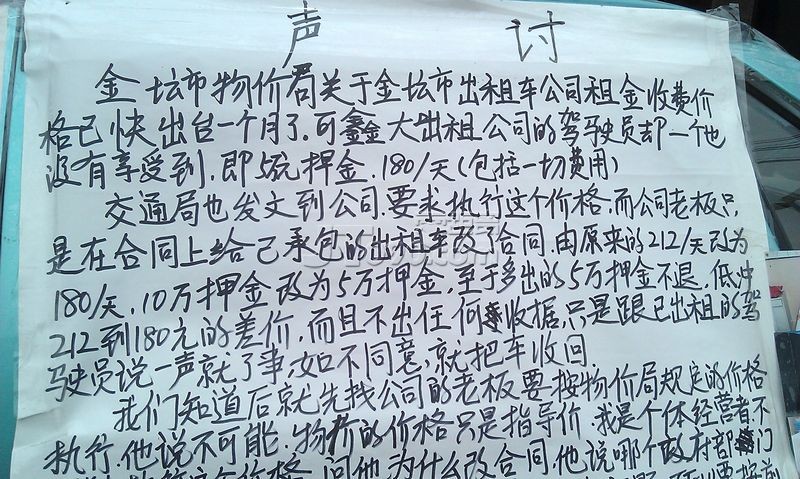 声讨
金坛市物价局关于金坛市出租车公司租金收费价
格已快出台一个月了,可鑫大出租公司的驾驶员却一个也
没有享受到,即5万押金,180/天(包括一切费用)
交通局也发文到公司,要求执行这个价格,而公司老板只
是在合同上给已承包的出租车改合同,由原来的212/天改为
180/天,10万押金改为5万押金,至于多出的5万押金不退,低冲
212到180元的差价,而且不出任何收据,只是跟已出租的驾
驶员说一声就了事,如不同意,就把车收回
我们知道后就先找公司的老板要按物价局规定的价格
执行,他说不可能,物价的价格只是指导价,我是个体经营者不
价格,问他为什么改合同,他说哪个政府部门